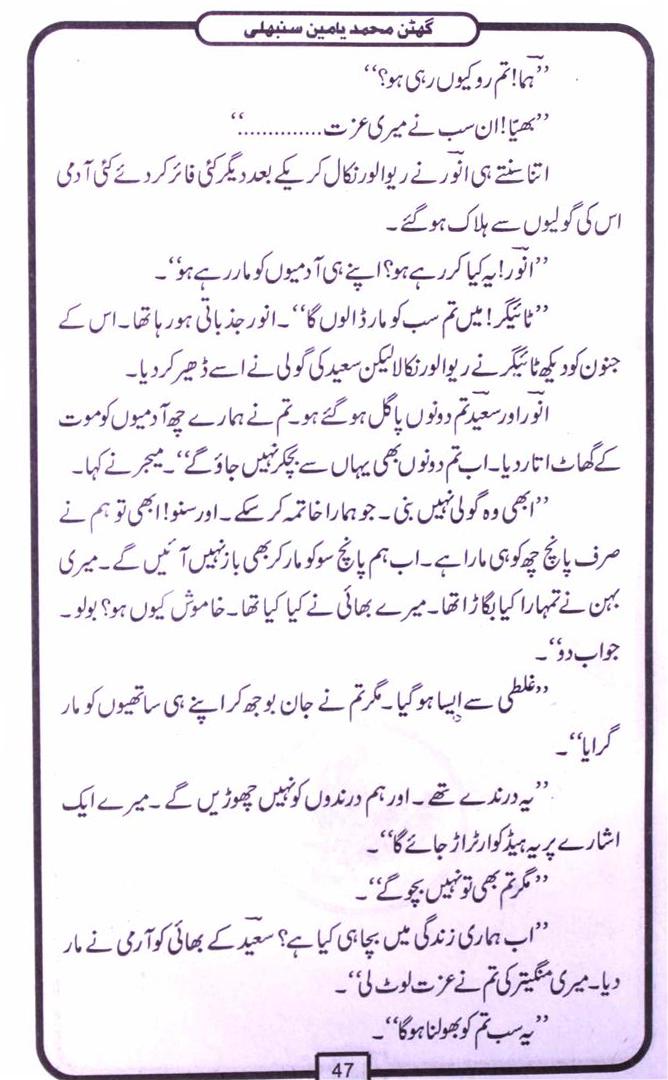 گھٹن محمد یامین سنبھلی
’’ہما! تم رو کیوں رہی ہو؟‘‘
’’بھیّا! ان سب نے میری عزت..............‘‘
اتنا سنتے ہی انور نے ریوالور نکال کر یکے بعد دیگر کئی فائر کر دئے کئی آدمی
اس کی گولیوں سے ہلاک ہو گئے۔
’’انور! یہ کیا کر رہے ہو؟ اپنے ہی آدمیوں کو مار رہے ہو‘‘۔
’’ٹائیگر! میں تم سب کو مار ڈالوں گا‘‘۔ انور جذباتی ہو رہا تھا۔ اس کے
جنون کو دیکھ ٹائیگر نے ریوالور نکالا لیکن سعید کی گولی نے اسے ڈھیر کر دیا۔
انور اور سعید تم دونوں پاگل ہو گئے ہو۔ تم نے ہمارے چھ آدمیوں کو موت
کے گھاٹ اتار دیا۔ اب تم دونوں بھی یہاں سے بچکر نہیں جاؤ گے‘‘۔ میجر نے کہا۔
’’ابھی وہ گولی نہیں بنی۔ جو ہمارا خاتمہ کر سکے۔ اور سنو! ابھی تو ہم نے
صرف پانچ چھ کو ہی مارا ہے۔ اب ہم پانچ سو کو مار کر بھی باز نہیں آئیں گے۔ میری
بہن نے تمہارا کیا بگاڑا تھا۔ میرے بھائی نے کیا کیا تھا۔ خاموش کیوں ہو؟ بولو۔
جواب دو‘‘۔
’’غلطی سے ایسا ہو گیا۔ مگر تم نے جان بوجھ کر اپنے ہی ساتھیوں کو مار
گرایا‘‘۔
’’یہ درندے تھے۔ اور ہم درندوں کو نہیں چھوڑیں گے۔ میرے ایک
اشارے پر یہ ہیڈ کوارٹر اڑ جائے گا‘‘۔
’’مگر تم بھی تو نہیں بچو گے‘‘۔
’’اب ہماری زندگی میں بچا ہی کیا ہے؟ سعید کے بھائی کو آرمی نے مار
دیا۔ میری منگیتر کی تم نے عزت لوٹ لی‘‘۔
’’یہ سب تم کو بھولنا ہوگا‘‘۔
47